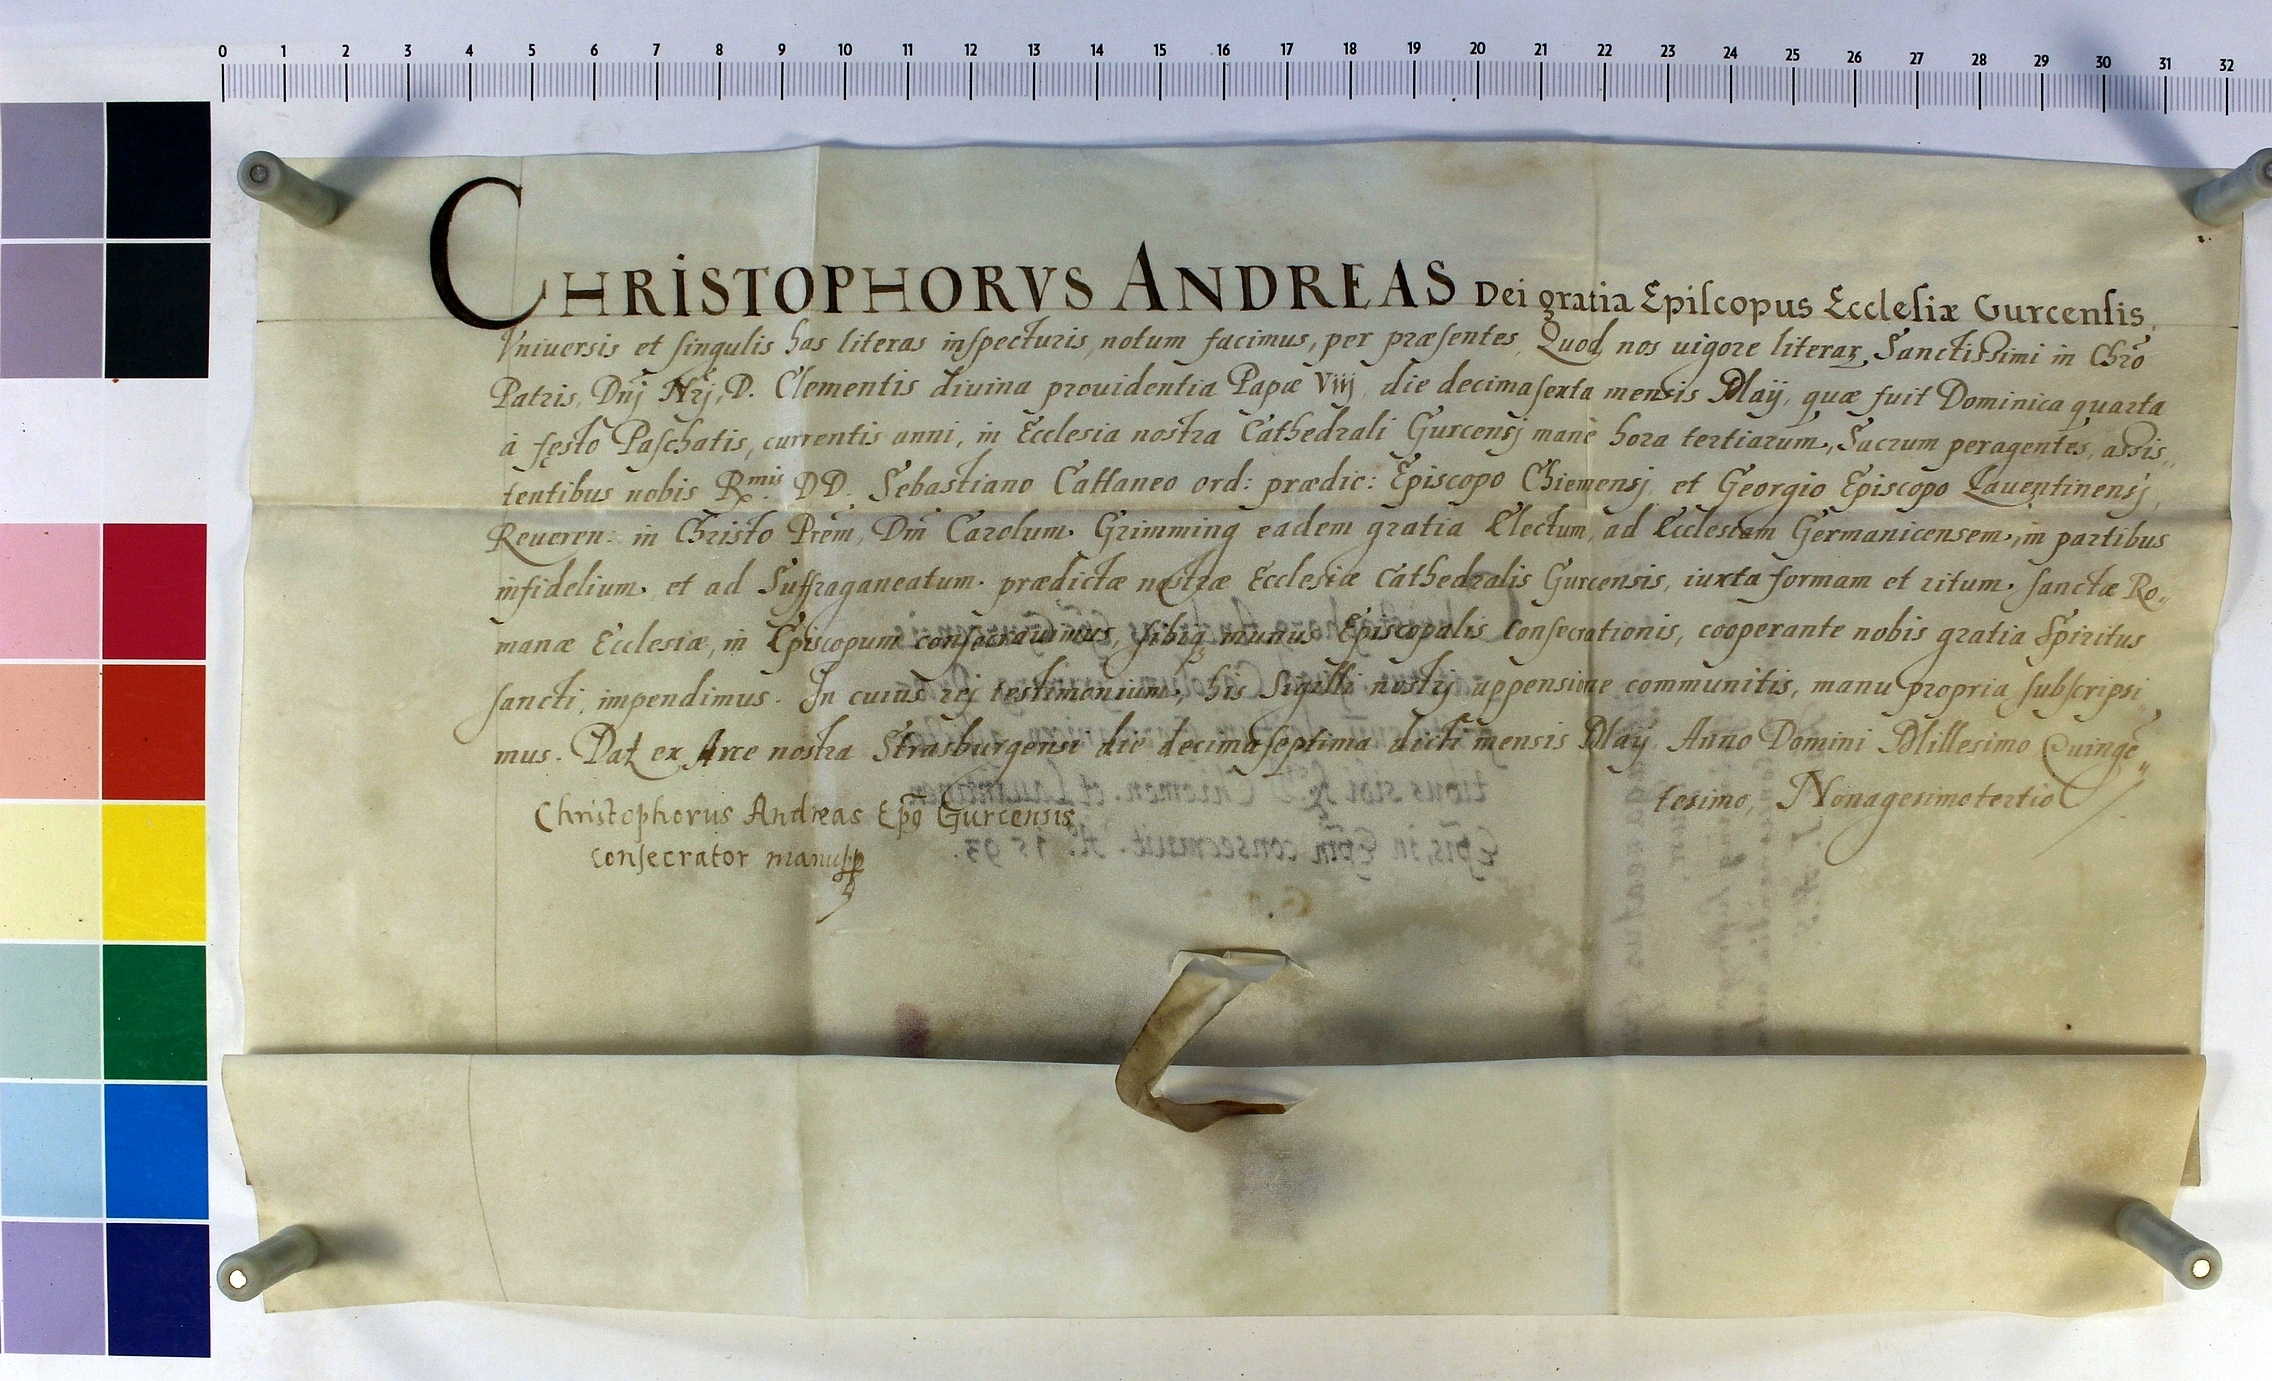 0 1 2 3 4 5 6 7 8 9 10 11 12 13 14 15 16 17 18 19 20 21 22 23 24 25 26 27 28 29 30 31 32
CHRISTOPHORVS ANDREAS Dei gratia Episcopus Ecclesiæ Gurcensis,
Vniuersis et singulis has literas inspecturis, notum facimus, per præsentes, Quod nos uigore literaꝝ Sanctissimi in Chr̃o
Patris, Dnj Nrj, D. Clementis diuina prouidentia Papæ Viij, die decimasexta mensis Maij, quæ fuit Dominica quarta
à festo Paschatis, currentis anni, in Ecclesia nostra Cathedrali Gurcensj mane hora tertiarum, Sacrum peragentes, assis„
tentibus nobis R.mis DD. Sebastiano Cattaneo ord: prædic: Episcopo Chiemensj, et Georgio Episcopo Lauentinensj,
Reueren: in Christo Prẽm, Dm̃ Carolum Grimming eadem gratia Electum, ad Ecclesiam Germanicensem, in partibus
infidelium, et ad Suffraganeatum prædictæ nostræ Ecclesiæ Cathedralis Gurcensis, iuxta formam et ritum sanctæ Ro„
manæ Ecclesiæ, in Episcopum consecrauimus, sibiqꝫ munus Episcopalis Consecrationis, cooperante nobis gratia Spiritus
sancti, impendimus. In cuius rej testimonium, his Sigilli nostrj appensione communitis, manu propria subscripsi
mus. Datꝫ ex Arce nostra Strasburgensi die decimaseptima dicti mensis Maij Anno Domini Millesimo Quingẽ„
tesimo, Nonagesimotertio
Christophorus Andreas Ep̃s Gurcensis
consecrator manu pp